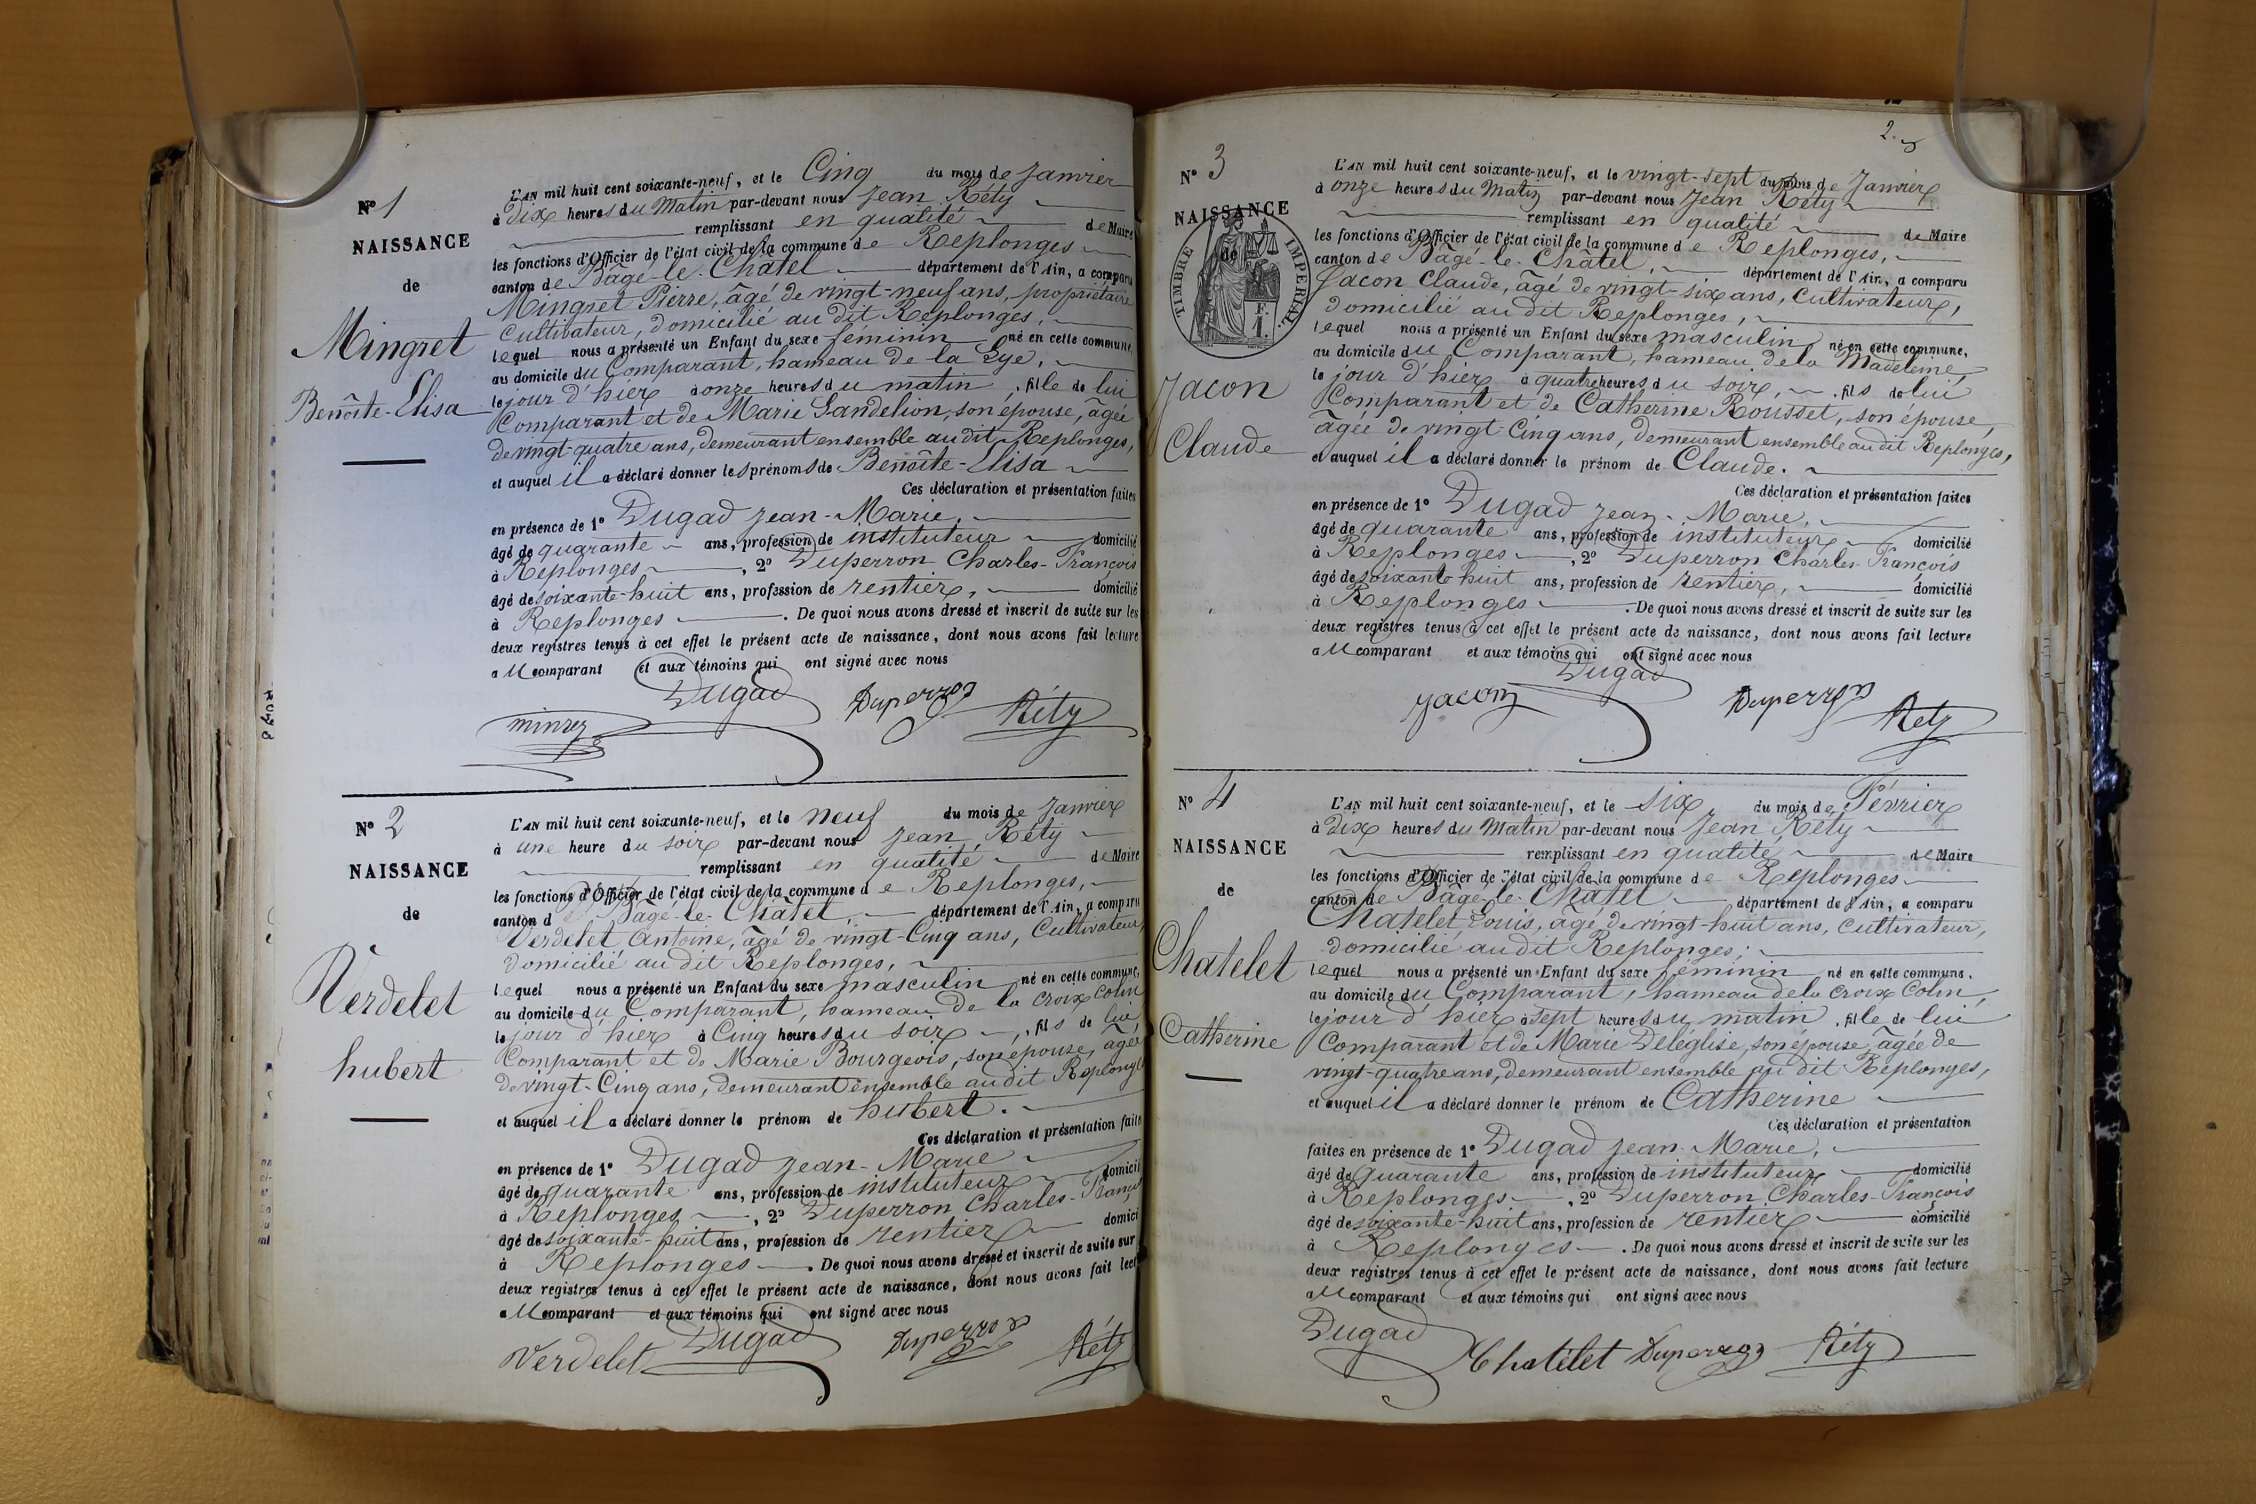 N° 1
NAISSANCE
de
Mingret
Benoîte-Elisa
L'AN mil huit cent soixante-neuf, et le Cinq du mois de Janvier
à dix heures du Matin par-devant nous Jean Réty
remplissant en qualité de Maire
les fonctions d'Officier de l'état civil de la commune de Replonges
canton de Bâgé-le-Châtel département de l'Ain, a comparu
Mingret Pierre, âgé de vingt-neuf ans, propriétaire
Cultivateur, domicilié au dit Replonges,
lequel nous a présenté un Enfant du sexe féminin né en cette commune,
au domicile du Comparant, hameau de la Lye,
le jour d'hier à onze heures du matin, fille de lui
Comparant et de Marie Sandelion, son épouse, âgée
de vingt-quatre ans, demeurant ensemble au dit Replonges,
et auquel il a déclaré donner les prénoms de Benoîte-Elisa
Ces déclaration et présentation faites
en présence de 1° Dugad Jean-Marie,
âgé de quarante ans, profession de instituteur domicilié
à Replonges, 2° Duperron Charles-François
âgé de soixante-huit ans, profession de rentier, domicilié
à Replonges. De quoi nous avons dressé et inscrit de suite sur les
deux registres tenus à cet effet le présent acte de naissance, dont nous avons fait lecture
au comparant et aux témoins qui ont signé avec nous
Dugad Duperron Réty
minrez
N° 2
NAISSANCE
de
Verdelet
hubert
L'AN mil huit cent soixante-neuf, et le neuf du mois de Janvier
à une heure du soir par-devant nous Jean Réty
remplissant en qualité de Maire
les fonctions d'Officier de l'état civil de la commune de Replonges,
canton de Bâgé-le-Châtel, département de l'Ain, a comparu
Verdelet Antoine, âgé de vingt-Cinq ans, Cultivateur,
domicilié au dit Replonges,
lequel nous a présenté un Enfant du sexe masculin né en cette commune,
au domicile du Comparant, hameau de la Croix Colin
le jour d'hier à Cinq heures du soir, fils de lui
Comparant et de Marie Bourgeois, son épouse, âgée
de vingt-Cinq ans, demeurant ensemble au dit Replonges
et auquel il a déclaré donner le prénom de hubert.
Ces déclaration et présentation faite
en présence de 1° Dugad Jean-Marie
âgé de quarante ans, profession de instituteur domicil
à Replonges, 2° Duperron Charles-François
âgé de soixante-huit ans, profession de rentier domici
à Replonges. De quoi nous avons dressé et inscrit de suite sur
deux registres tenus à cet effet le présent acte de naissance, dont nous avons fait lect
au comparant et aux témoins qui ont signé avec nous
Verdelet Dugad Duperron Réty
2.
N° 3
NAISSANCE
de
TIMBRE IMPERIAL
1 F.
Jacon
Claude
L'AN mil huit cent soixante-neuf, et le vingt-sept du mois de Janvier
à onze heures du Matin par-devant nous Jean Réty
remplissant en qualité de Maire
les fonctions d'Officier de l'état civil de la commune de Replonges,
canton de Bâgé-le-Châtel, département de l'Ain, a comparu
Jacon Claude, âgé de vingt-six ans, Cultivateur,
domicilié au dit Replonges,
lequel nous a présenté un Enfant du sexe masculin né en cette commune,
au domicile du Comparant, hameau de la Madeleine,
le jour d'hier à quatre heures du soir, fils de lui
Comparant et de Catherine Rousset, son épouse,
âgée de vingt-Cinq ans, demeurant ensemble au dit Replonges,
et auquel il a déclaré donner le prénom de Claude.
Ces déclaration et présentation faites
en présence de 1° Dugad Jean-Marie,
âgé de quarante ans, profession de instituteur domicilié
à Replonges, 2° Duperron Charles-François
âgé de soixante huit ans, profession de rentier, domicilié
à Replonges. De quoi nous avons dressé et inscrit de suite sur les
deux registres tenus à cet effet le présent acte de naissance, dont nous avons fait lecture
au comparant et aux témoins qui ont signé avec nous
Jacon Dugad Duperron Réty
N° 4
NAISSANCE
de
Chatelet
Catherine
L'AN mil huit cent soixante-neuf, et le six du mois de Février
à dix heures du Matin par-devant nous Jean Réty
remplissant en qualité de Maire
les fonctions d'Officier de l'état civil de la commune de Replonges
canton de Bâgé-le-Châtel département de l'Ain, a comparu
Chatelet Louis, âgé de vingt-huit ans, Cultivateur,
domicilié au dit Replonges;
lequel nous a présenté un Enfant du sexe féminin né en cette commune,
au domicile du Comparant, hameau de la Croix Colin,
le jour d'hier à sept heures du matin, fille de lui
Comparant et de Marie Deléglise, son épouse, âgée de
vingt-quatre ans, demeurant ensemble au dit Replonges,
et auquel il a déclaré donner le prénom de Catherine
Ces déclaration et présentation
faites en présence de 1° Dugad Jean-Marie,
âgé de quarante ans, profession de instituteur domicilié
à Replonges, 2° Duperron Charles-François
âgé de soixante-huit ans, profession de rentier domicilié
à Replonges. De quoi nous avons dressé et inscrit de suite sur les
deux registres tenus à cet effet le présent acte de naissance, dont nous avons fait lecture
au comparant et aux témoins qui ont signé avec nous
Dugad Chatélet Duperron Réty